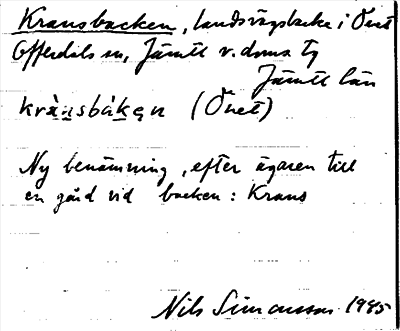 Kransbacken, landsvägsbacke i Önet
Offerdals sn, Jämtl v. doms tg
Jämtl län
krànsbákęn (Önet)
Ny benämning, efter ägaren till
en gård vid backen: Krans
Nils Simonsson 1945